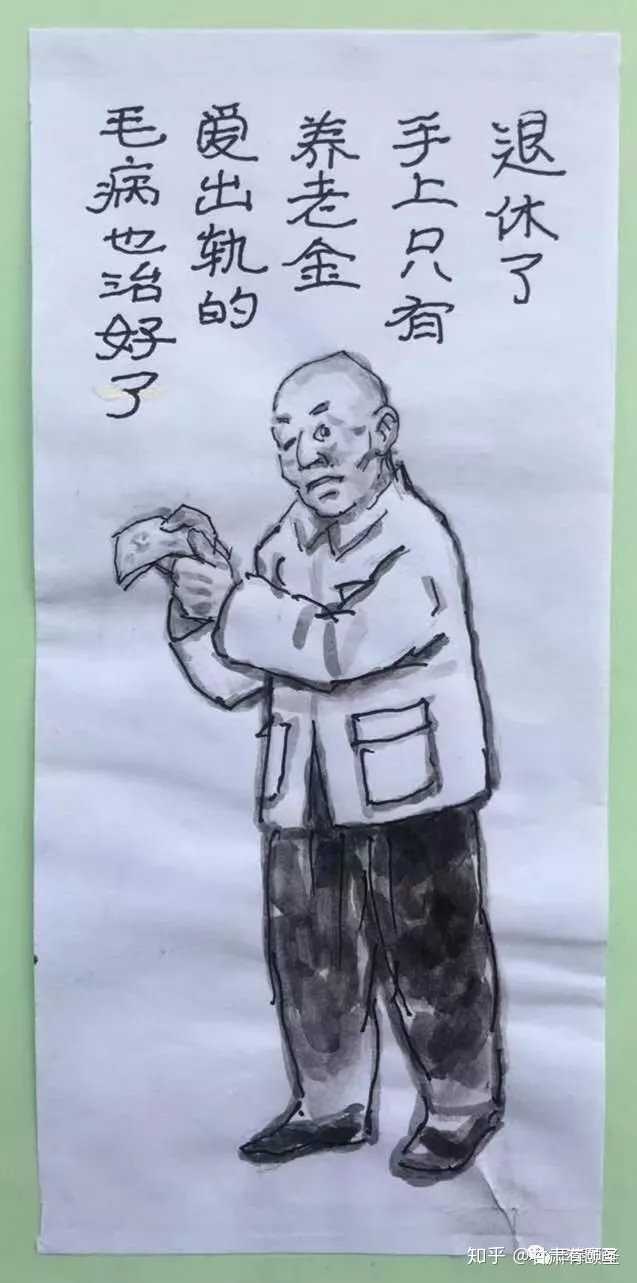 退休了
手上只有
养老金
爱出轨的
毛病也治好了
知乎